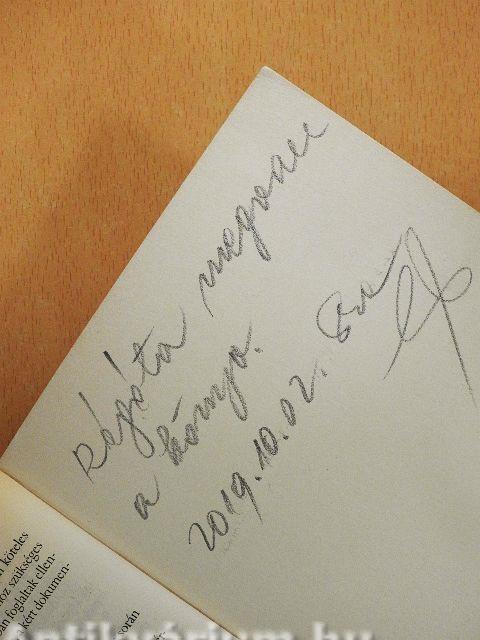 Régóta megvan
a könyv.
2019.10.02.
n köteles
hoz szükséges
ban foglaltak ellen-
kért dokumen-
során
antikvárium.hu